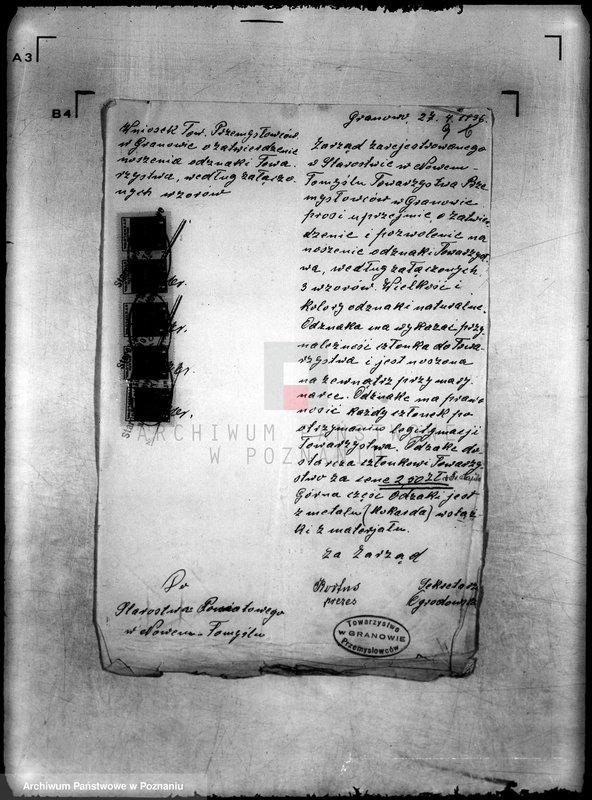 A3
B4
Granowo, 27. 4. 1936.
Wniosek Tow. Przemysłowców
w Granowie o zatwierdzenie
noszenia odznaki Towa-
rzystwa, według załączo-
nych wzorów
Zarząd zarejestrowanego
w Starostwie w Nowem-
Tomyślu Towarzystwa Prze-
mysłowców w Granowie
prosi uprzejmie, o zatwier-
dzenie i pozwolenie na
noszenie odznaki Towarzyst-
wa, według załączonych
3 wzorów. Wielkość i
kolory odznaki naturalne.
Odznaka ma wykazać przy-
należność członka do Towa-
rzystwa i jest noszona
na zewnątrz przy mary-
narce. Odznakę ma prawo
nosić każdy członek po
otrzymaniu legitymacji
Towarzystwa. Odznakę do-
starcza członkowi Towarzy-
stwo za cenę 2,50 zł
Górna część Odznaki jest
z metalu (kokarda) wstąż-
ki z materjału.
Za Zarząd
prezes
Sekretarz
Do
Starostwa Powiatowego
w Nowem-Tomyślu
Towarzystwo
W GRANOWIE
Przemysłowców
ARCHIWUM PAŃSTWOWE
W POZNANIU
Archiwum Państwowe w Poznaniu